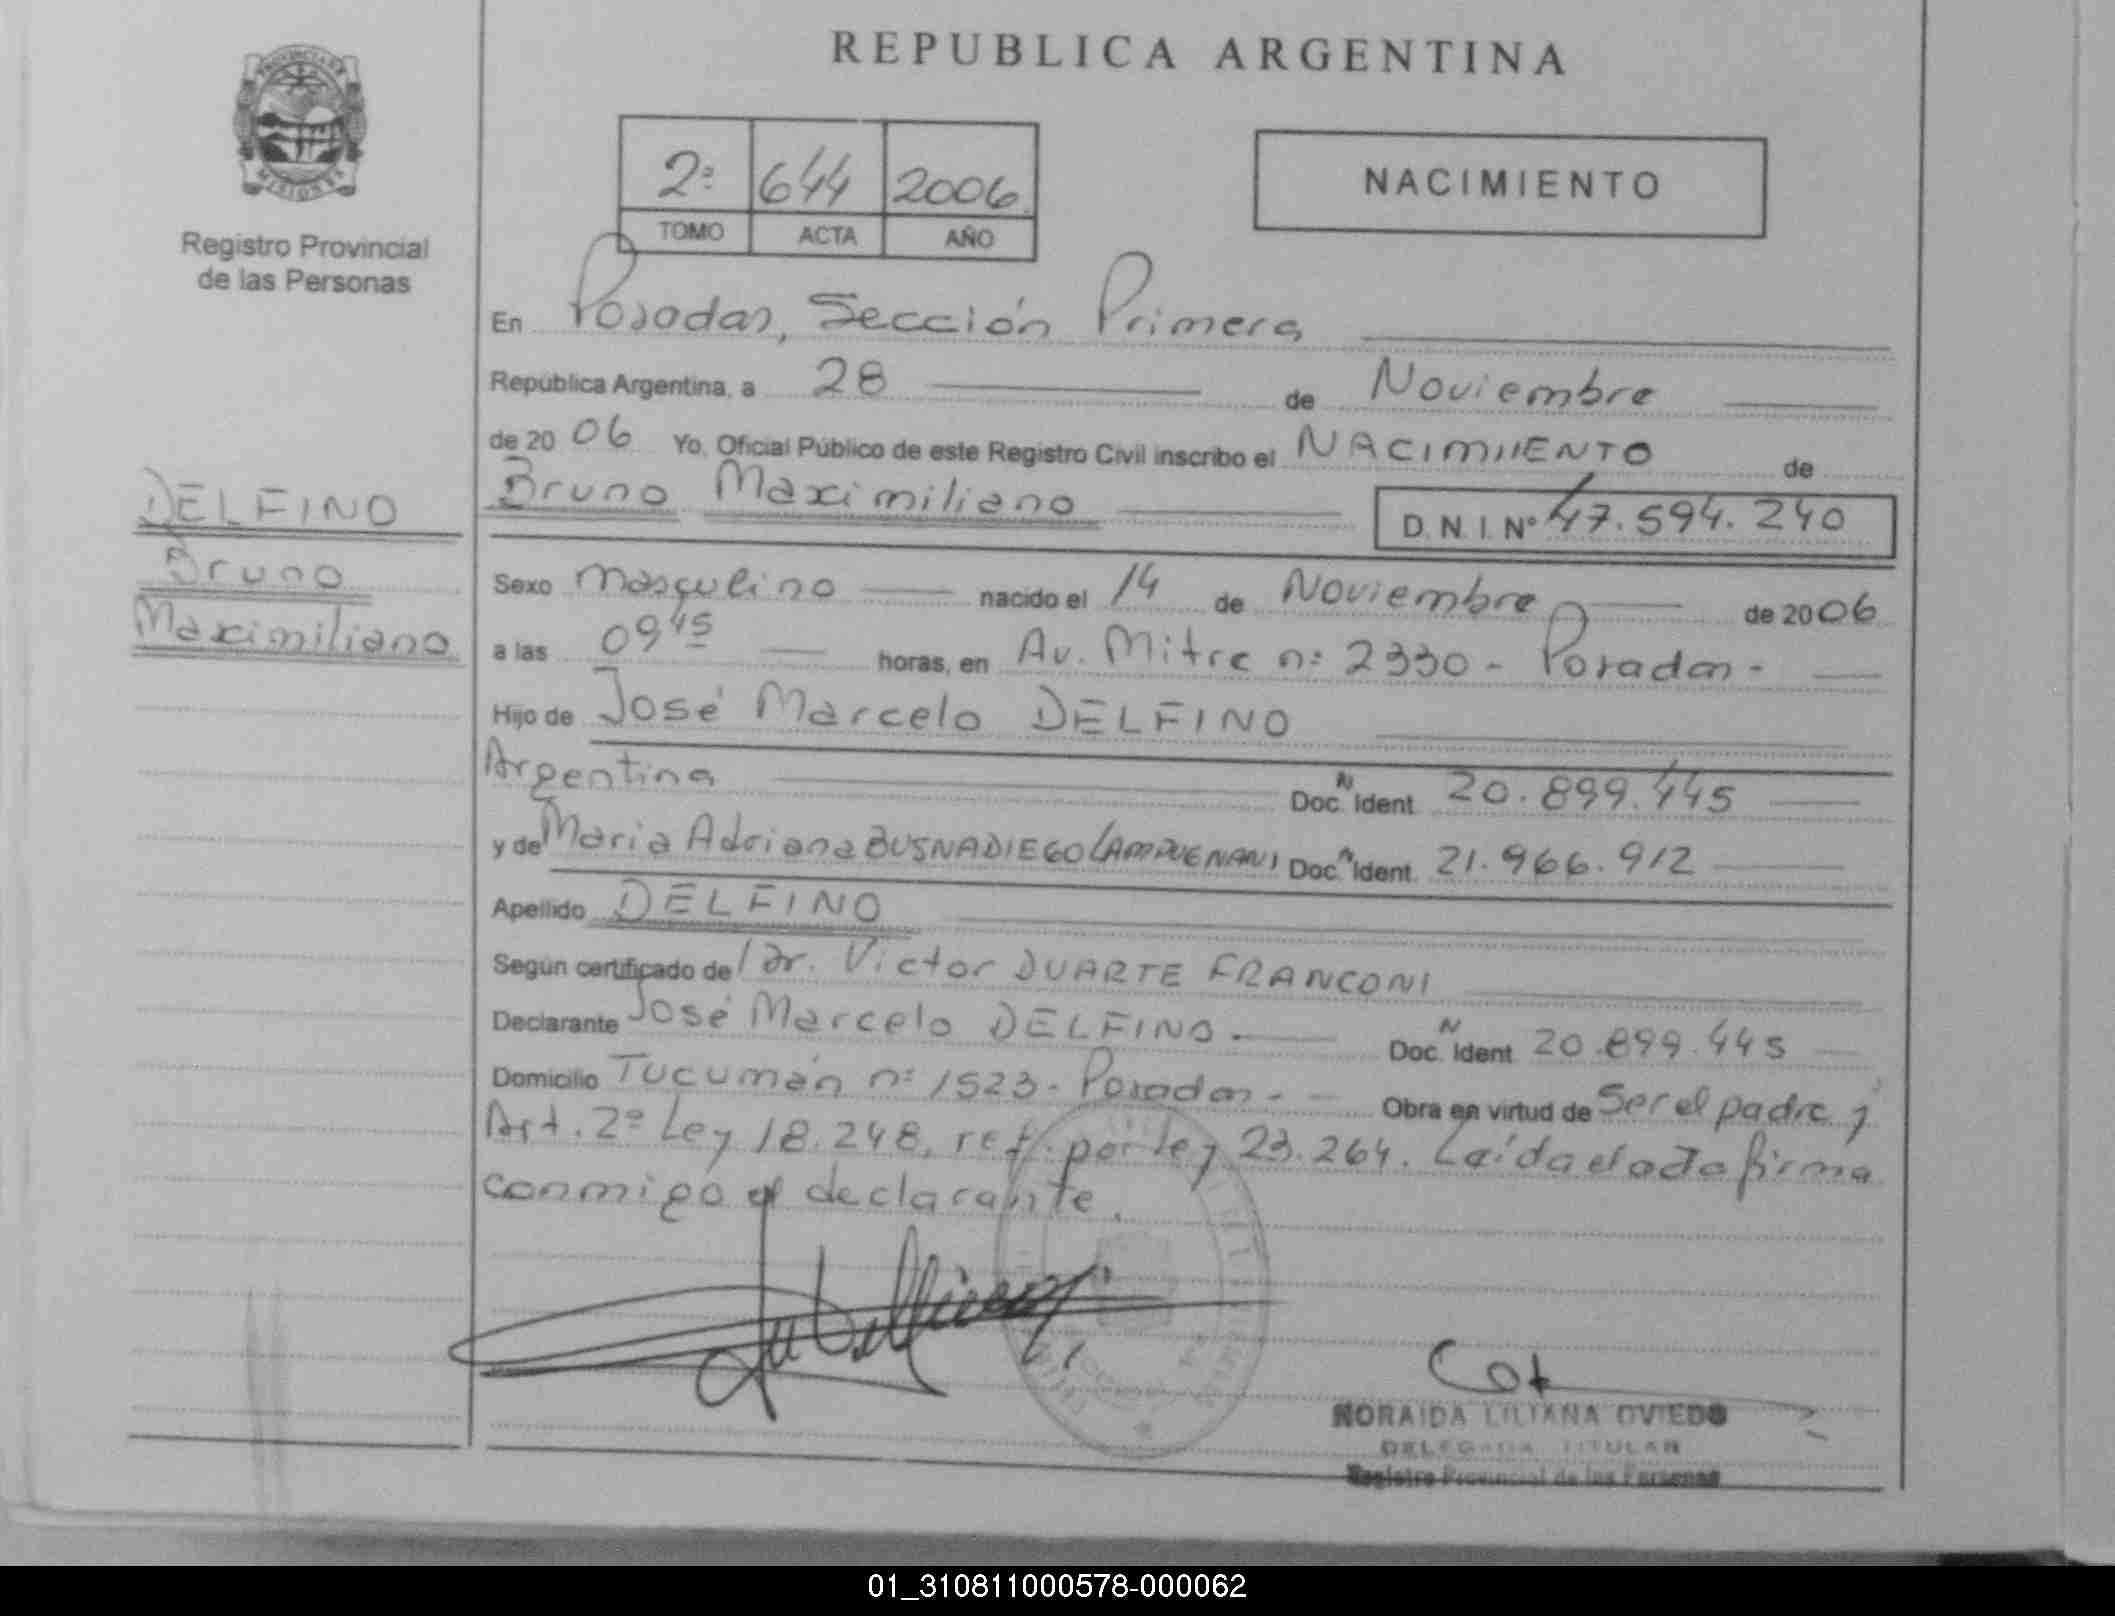 REPUBLICA ARGENTINA
PROVINCIA DE
MISIONES
Registro Provincial
de las Personas
2º 644 2006
TOMO ACTA AÑO
NACIMIENTO
En Posadas, Sección Primera
República Argentina, a 28 de Noviembre
de 2006 Yo, Oficial Público de este Registro Civil inscribo el NACIMIENTO de
Bruno Maximiliano D.N.I. Nº 47.594.240
DELFINO
Bruno
Maximiliano
Sexo masculino nacido el 14 de Noviembre de 2006
a las 09 45 horas, en Av. Mitre nº 2330 - Posadas -
Hijo de José Marcelo DELFINO
Argentina Doc. N Ident. 20.899.445
y de Maria Adriana BUSNADIEGO LAMPUGNANI Doc. N Ident. 21.966.912
Apellido DELFINO
Según certificado del Dr. Victor DUARTE FRANCONI
Declarante José Marcelo DELFINO.- Doc. N Ident. 20.899.445
Domicilio Tucumán nº 1523 - Posadas - Obra en virtud de Ser el padre y
Art. 2º Ley 18.248, ref. por ley 23.264. Leída el acta firma
conmigo el declarante.
NORAIDA LILIANA OVIEDO
DELEGADA TITULAR
Registro Provincial de las Personas
01_310811000578-000062